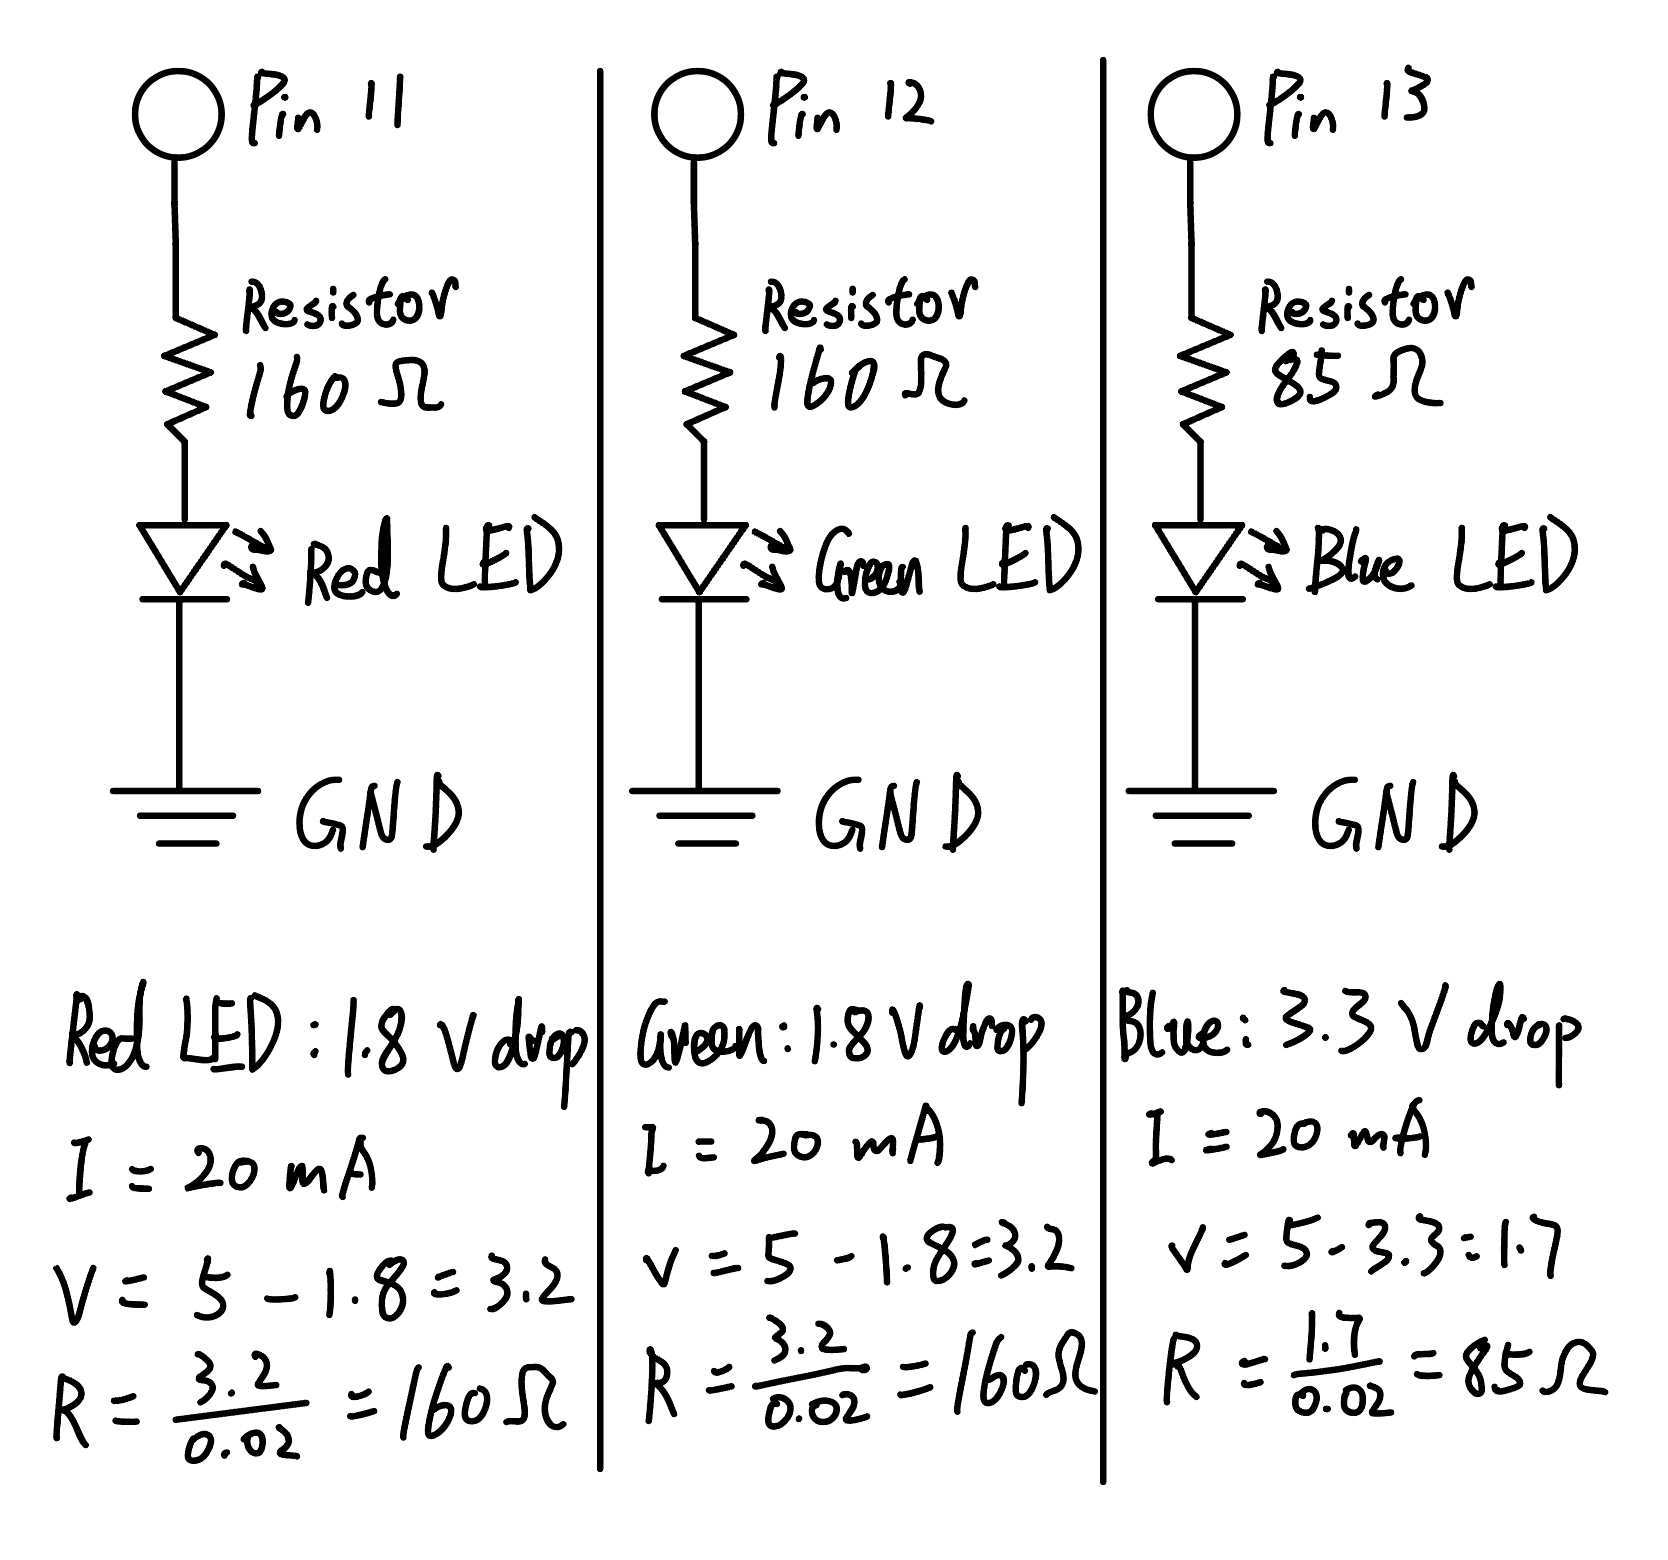 Pin 11
Resistor
160 Ω
Red LED
GND
Red LED : 1.8 V drop
I = 20 mA
V = 5 - 1.8 = 3.2
R = 3.2/0.02 = 160 Ω
Pin 12
Resistor
160 Ω
Green LED
GND
Green : 1.8 V drop
I = 20 mA
V = 5 - 1.8 = 3.2
R = 3.2/0.02 = 160 Ω
Pin 13
Resistor
85 Ω
Blue LED
GND
Blue : 3.3 V drop
I = 20 mA
V = 5 - 3.3 = 1.7
R = 1.7/0.02 = 85 Ω